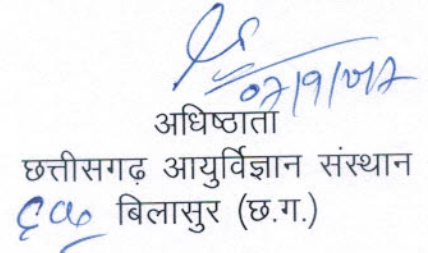 अधिष्ठाता
छत्तीसगढ़ आयुर्विज्ञान संस्थान
बिलासुर (छ.ग.)